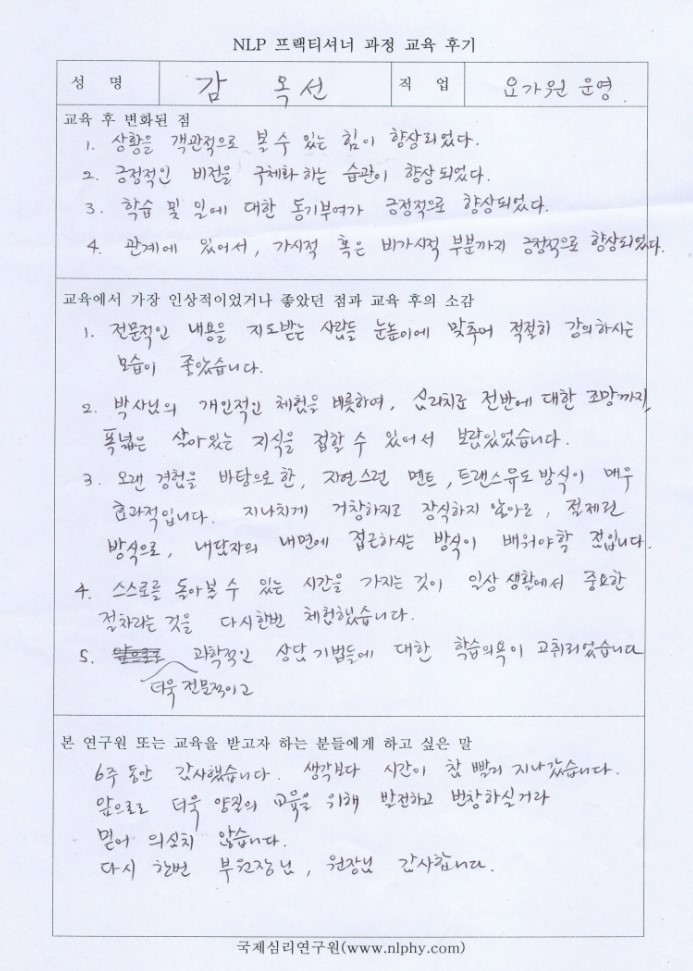 NLP 프랙티셔너 과정 교육 후기
성 명 감 옥 선 직 업 요가원 운영.
교육 후 변화된 점
1. 상황을 객관적으로 볼 수 있는 힘이 향상되었다.
2. 긍정적인 비전을 구체화하는 습관이 향상되었다.
3. 학습 및 일에 대한 동기부여가 긍정적으로 향상되었다.
4. 관계에 있어서, 가시적 혹은 비가시적 부분까지 긍정적으로 향상되었다.
교육에서 가장 인상적이었거나 좋았던 점과 교육 후의 소감
1. 전문적인 내용을 지도받는 사람들 눈높이에 맞추어 적절히 강의하시는
모습이 좋았습니다.
2. 박사님의 개인적인 체험을 비롯하여, 심리치료 전반에 대한 조망까지,
폭넓은 살아있는 지식을 접할 수 있어서 보람있었습니다.
3. 오랜 경험을 바탕으로 한, 자연스런 멘트, 트랜스유도 방식이 매우
효과적입니다. 지나치게 거창하지도 장식하지 않아도, 절제된
방식으로, 내담자의 내면에 접근하시는 방식이 배워야할 점입니다.
4. 스스로를 돌아볼 수 있는 시간을 가지는 것이 일상 생활에서 중요한
절차라는 것을 다시한번 체험했습니다.
5. 과학적인 상담기법들에 대한 학습의욕이 고취되었습니다
더욱 전문적이고
본 연구원 또는 교육을 받고자 하는 분들에게 하고 싶은 말
6주 동안 감사했습니다. 생각보다 시간이 참 빨리 지나갔습니다.
앞으로도 더욱 양질의 교육을 위해 발전하고 번창하실거라
믿어 의심치 않습니다.
다시 한번 부원장님, 원장님 감사합니다.
국제심리연구원(www.nlphy.com)